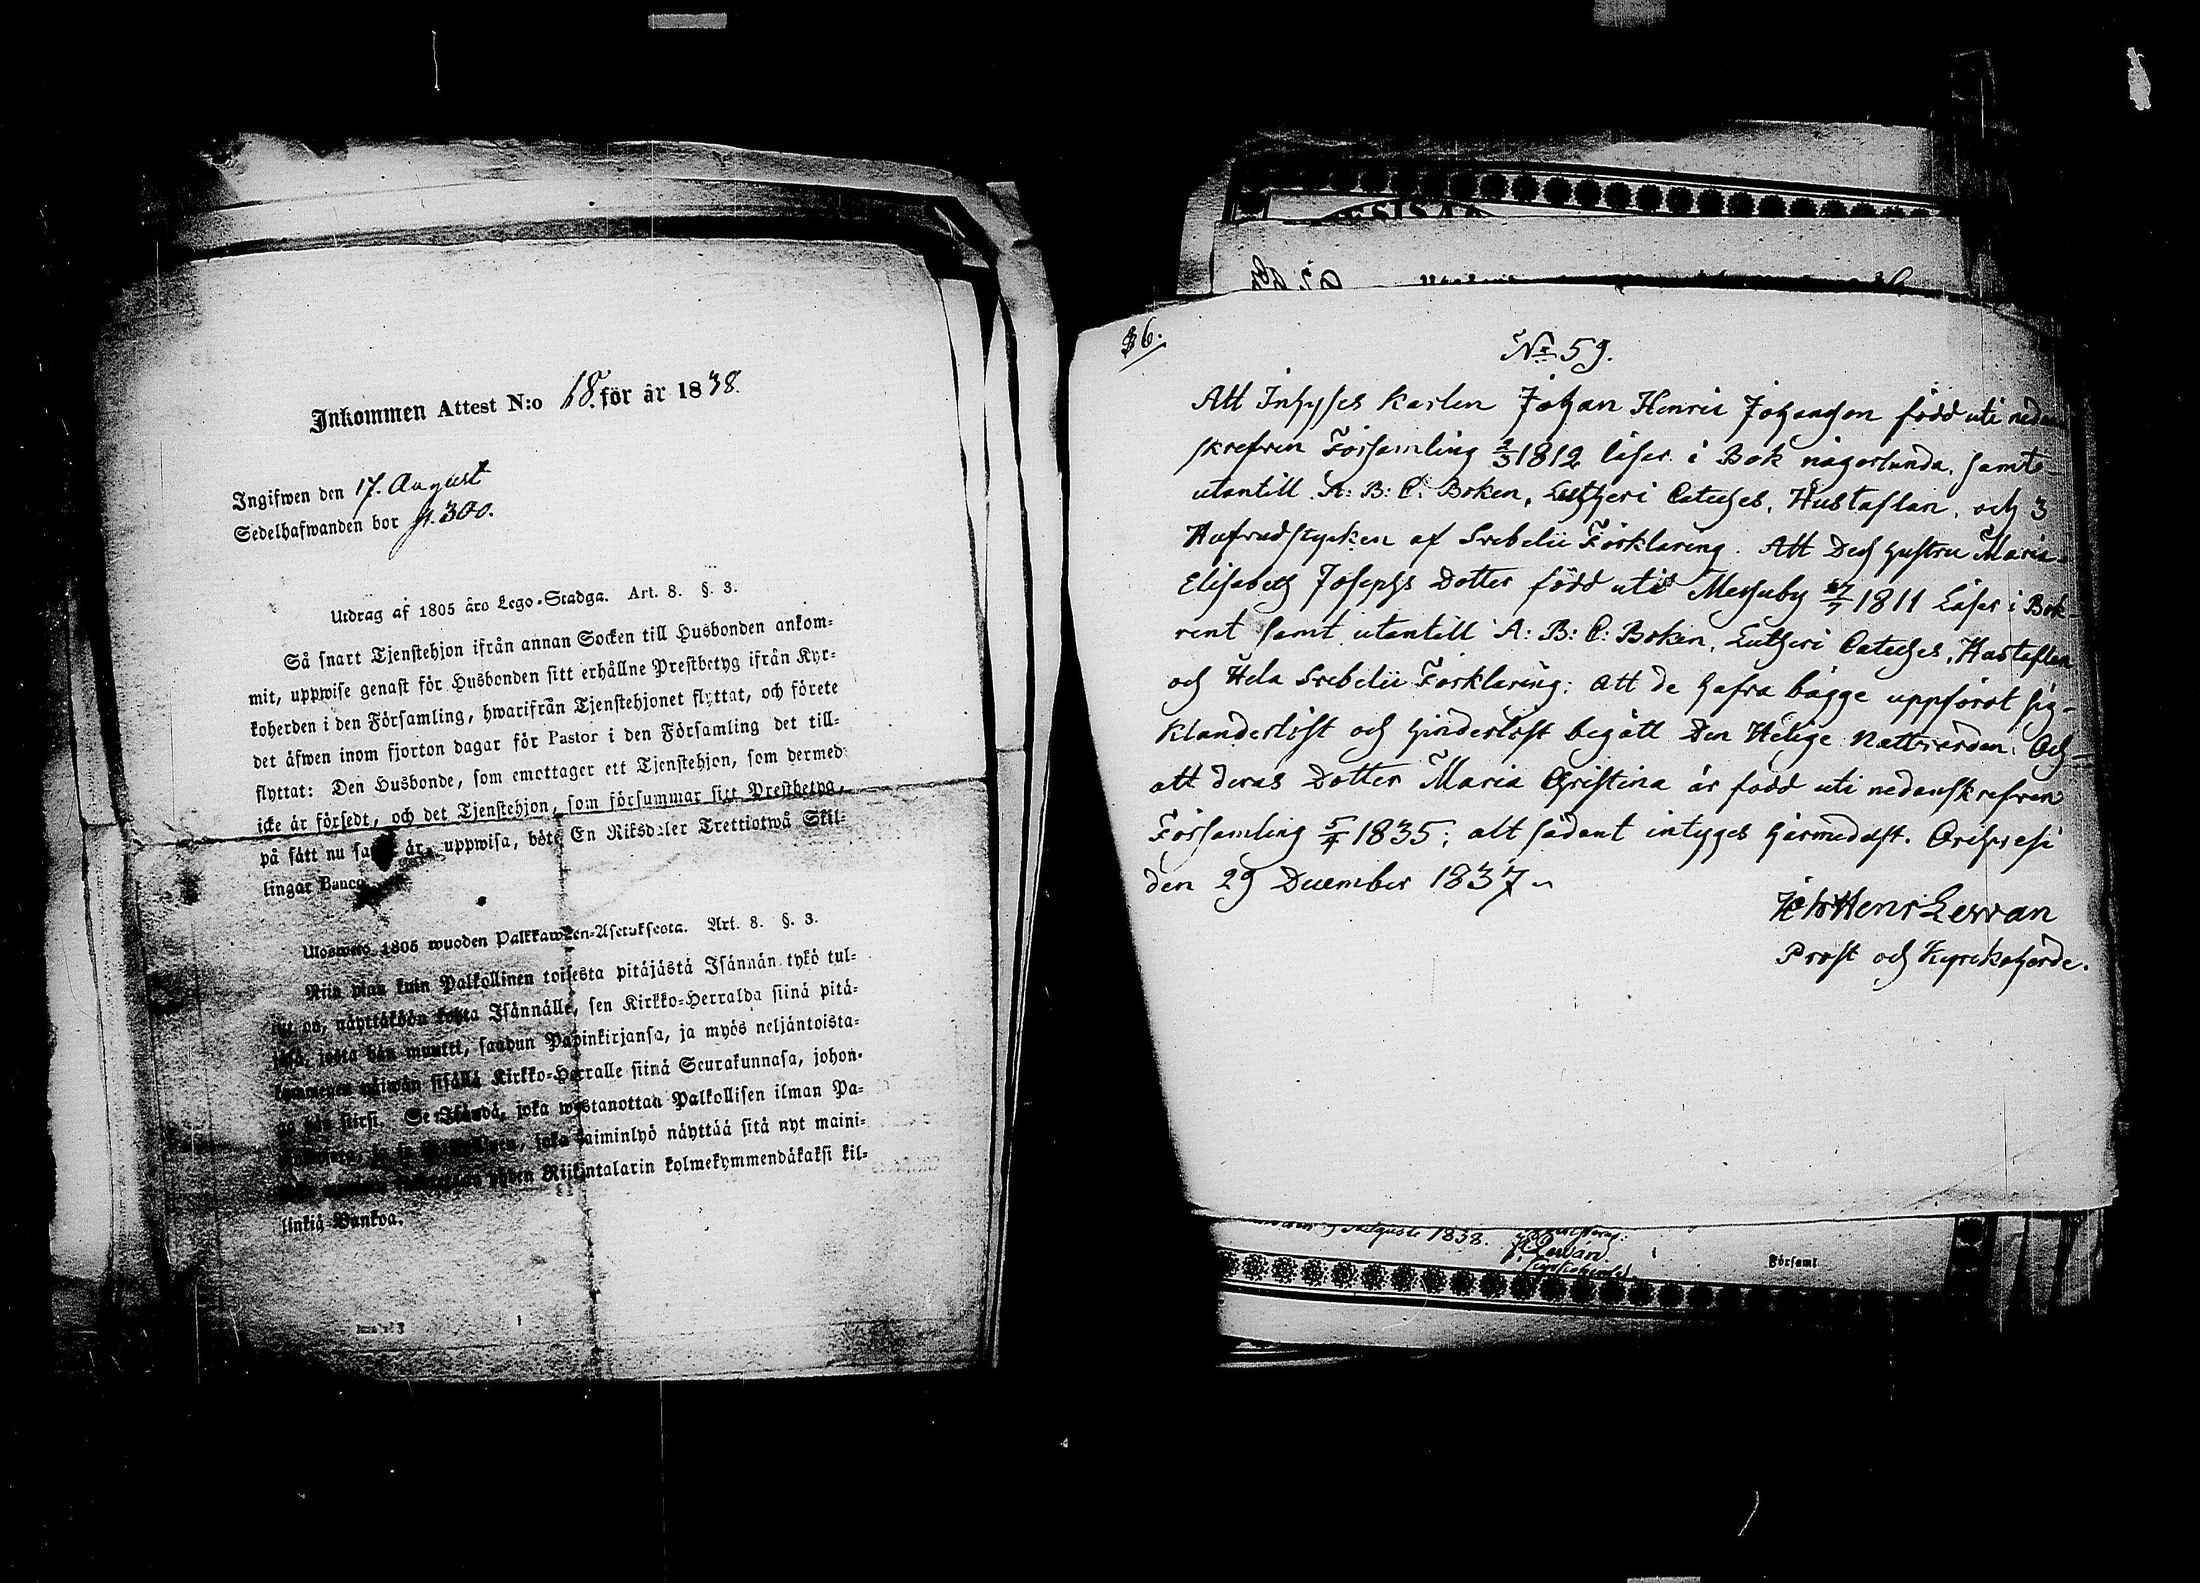 Inkommen Attest N:o 18. för år 1838.
Ingifwen den 17. August
Sedelhafwanden bor p. 300.
Utdrag af 1805 års Lego-Stadga. Art. 8. §. 3.
Så snart Tjenstehjon ifrån annan Socken till Husbonden ankom-
mit, uppwise genast för Husbonden sitt erhållne Prestbetyg ifrån Kyr-
koherden i den Församling, hwarifrån Tjenstehjonet flyttat, och förete
det äfwen inom fjorton dagar för Pastor i den Församling det till-
flyttat: Den Husbonde, som emottager ett Tjenstehjon, som dermed
icke är försedt, och det Tjenstehjon, som försummar sitt Prestbetyg,
på sätt nu är, uppwisa, böte En Riksdaler Trettiotwå Skil-
lingar Banco
Ulosweto 1805 wuoden Palkkawäen-Asetuksesta. Art. 8. §. 3.
Niin pian kuin Palkollinen toisesta pitäjästä Isännän tykö tul-
lut on, näyttäköön kohta Isännälle, sen Kirkko-Herralda siinä pitä-
jäsä, josta hän muutti, saadun Papinkirjansa, ja myös neljäntoista-
kymmenen päiwän sisällä Kirkko-Herralle siinä Seurakunnasa, johon-
ga hän siirsi. Se Isändä, joka wastanottaa Palkollisen ilman Pa-
joka laiminlyö näyttää sitä nyt maini-
yhden Riikintalarin kolmekymmendäkaksi kil-
linkiä Bankoa.
36.
No 59.
Att Inhyses Karlen Johan Henric Johansson född uti nedan
skrefven Församling 2/3 1812 läser i Bok någorlunda, samt
utantill A: B: C: Boken, Lutheri Cateches, Hustaflan, och 3
Hufvudstycken af Svebelii Förklaring. Att Dess hustru Maria
Elisabeth Josephs Dotter född uti Messuby 27/7 1811 Läser i Bok
rent samt utantill A: B: C: Boken, Lutheri Cateches, Hustaflan
och Hela Svebelii Förklaring: att de hafva bägge uppfört sig
Klanderlöst och hinderlöst begått Den Helige Nattvarden. Och
att deras Dotter Maria Christina är född uti nedanskrefven
Församling 5/4 1835; alt sådant intyges härmedelst. Orihvesi
den 29 December 1837.
Joh Henr Lewan
Prost och Kyrckoherde.
Auguste 1838.
Lewan
Församl